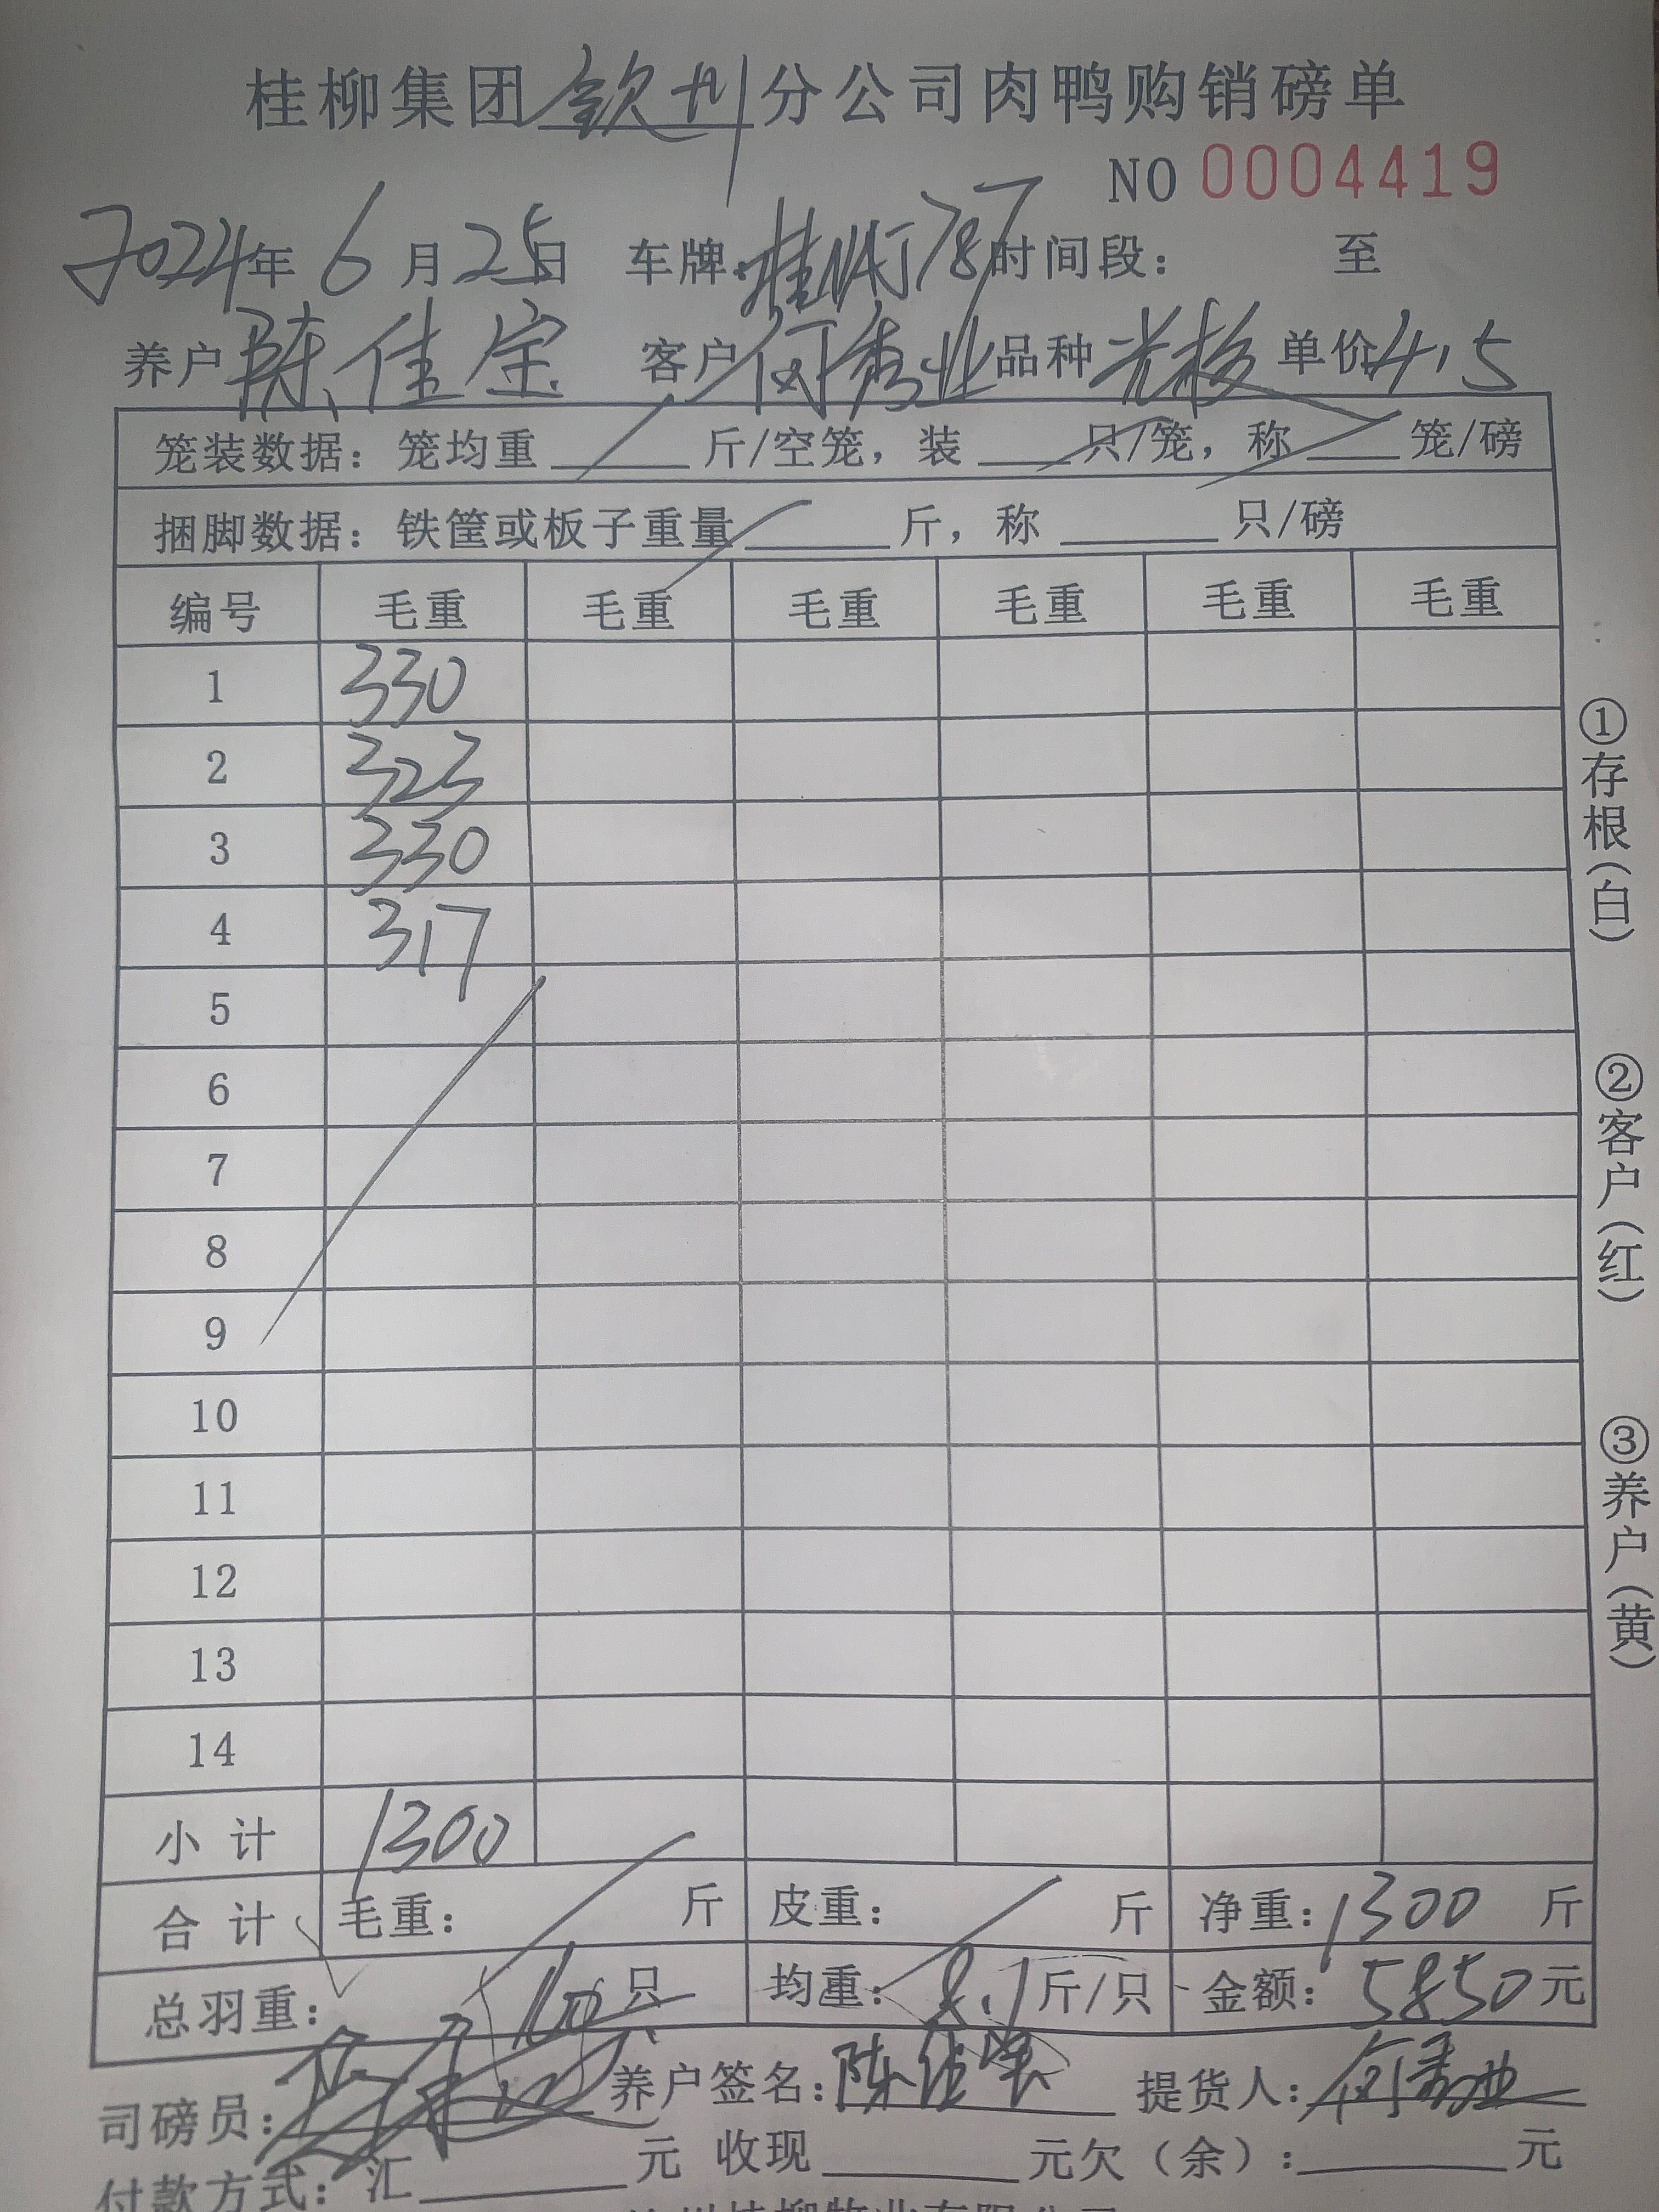 桂柳集团钦州分公司肉鸭购销磅单
NO 0004419
2024年 6 月 25日 车牌: 时间段: 至
养户 陈佳宝 客户 何秀业 品种 单价 4.5
笼装数据: 笼均重 斤/空笼, 装 只/笼, 称 笼/磅
捆脚数据: 铁筐或板子重量 斤, 称 只/磅
编号 毛重 毛重 毛重 毛重 毛重 毛重
1 330
2 323
3 330
4 317
5
6
7
8
9
10
11
12
13
14
小计 1300
合计 毛重: 斤 皮重: 斤 净重: 1300 斤
总羽重: 160 只 均重: 8.1 斤/只 金额: 5850元
司磅员: 养户签名: 陈佳宝 提货人: 何秀业
付款方式: 汇 元 收现 元欠(余): 元
①存根(白)
②客户(红)
③养户(黄)